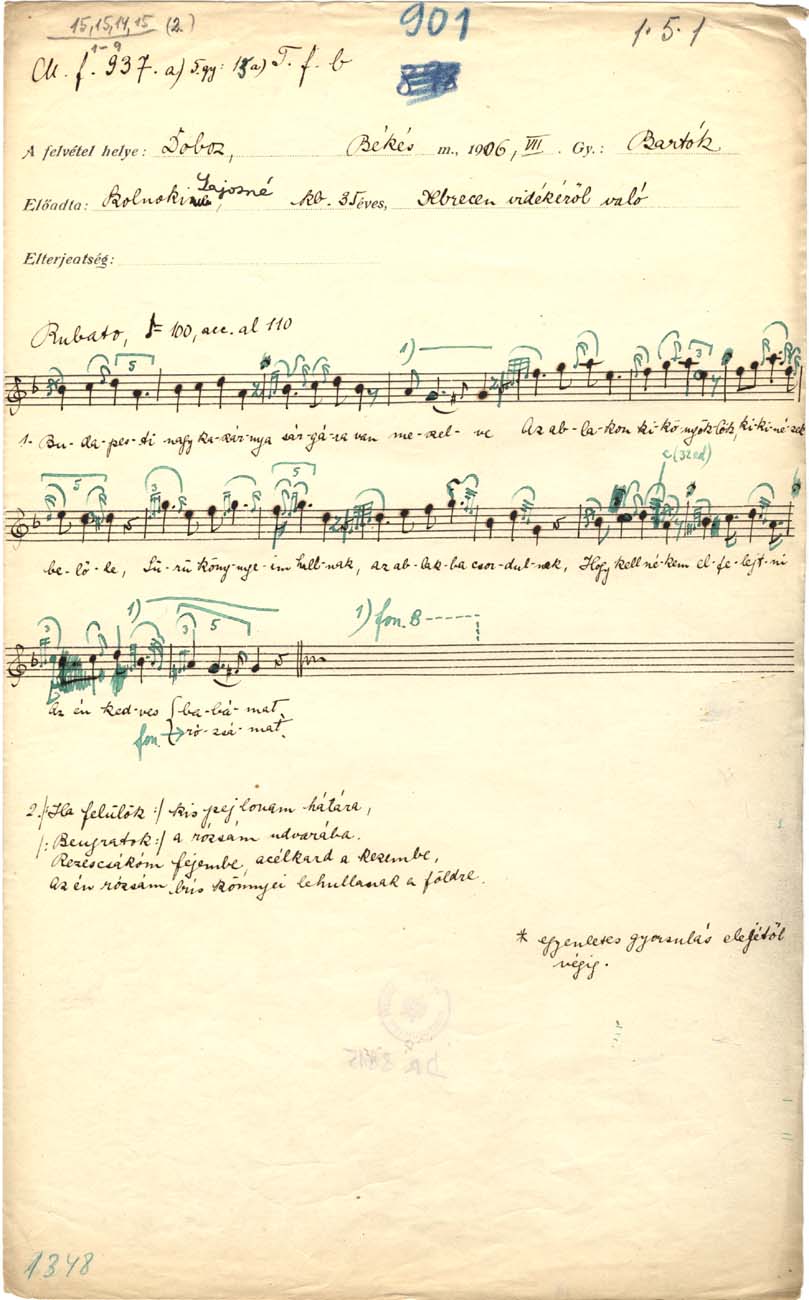 15,15,14,15 (2.)
1-9
901
1.5.1
M. f. 937. a) T. f. b
A felvétel helye: Doboz, Békés m., 1906, VII. Gy.: Bartók
Előadta: Rolnoki Lajosné kb. 35 éves, Debrecen vidékéről való
Elterjeatség:
Rubato, ♪= 100, acc. al 110
1)
1. Bu-da-pes-ti nagy ka-szár-nya sár-gá-ra van me-szel-ve Az ab-la-kon ki-kö-nyök-lök, ki-ki-né-zek
c (32ed)
be-lő-le, Sű-rű köny-nye-im hull-nak, az ab-lak-ba csor-dul-nak, Hogy kell né-kem el-fe-lejt-ni
1)
1) fon. B
Az én ked-ves ba-bá-mat.
fon. ró-zsá-mat.
2. /: Ha felülök :/ kis pej lovam hátára,
/: Beugratok :/ a rózsám udvarába.
Rézcsákóm fejembe, acélkard a kezembe,
Az én rózsám bús könnyei lehullanak a földre.
* egyenletes gyorsulás elejétől
végig.
1348